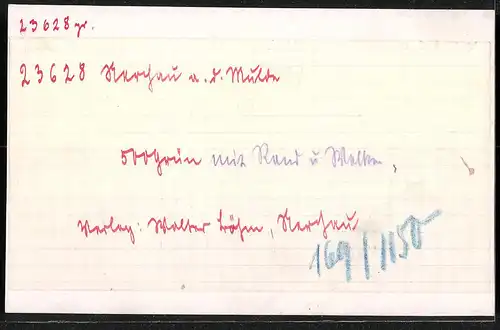 23628 gr.
23628 Nerchau a. d. Mulde
500 Grün mit Rand u Wolken.
Verlag: Walter Böhm, Nerchau
169/1150